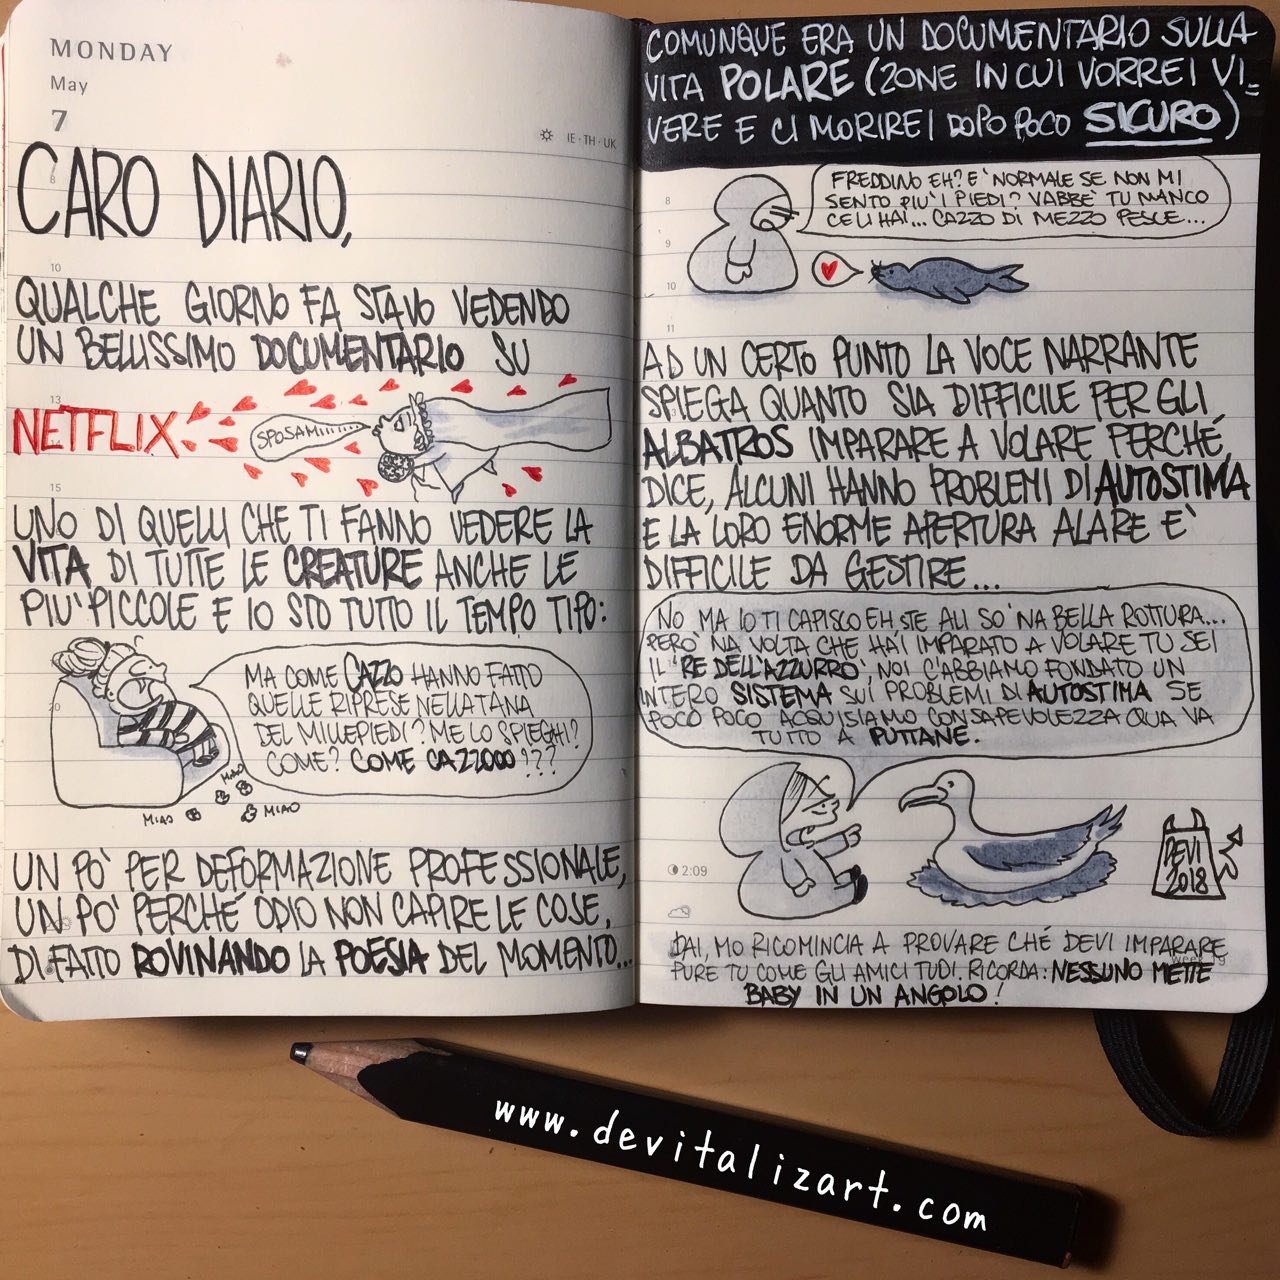 MONDAY
May
7
IE·TH·UK
CARO DIARIO,
8
10
QUALCHE GIORNO FA STAVO VEDENDO
UN BELLISSIMO DOCUMENTARIO SU
13
NETFLIX
SPOSAMIIIIII
15
UNO DI QUELLI CHE TI FANNO VEDERE LA
VITA DI TUTTE LE CREATURE ANCHE LE
PIU' PICCOLE E IO STO TUTTO IL TEMPO TIPO:
MA COME CAZZO HANNO FATTO
QUELLE RIPRESE NELLA TANA
DEL MILLEPIEDI? ME LO SPIEGHI?
COME? COME CAZZOOO???
20
MIAO
MIAO
MIAO
UN PO' PER DEFORMAZIONE PROFESSIONALE,
UN PO' PERCHÉ ODIO NON CAPIRE LE COSE,
DI FATTO ROVINANDO LA POESIA DEL MOMENTO...
COMUNQUE ERA UN DOCUMENTARIO SULLA
VITA POLARE (ZONE IN CUI VORREI VI=
VERE E CI MORIREI DOPO POCO SICURO)
8
FREDDINO EH? E' NORMALE SE NON MI
SENTO PIU' I PIEDI? VABBE' TU MANCO
CE LI HAI... CAZZO DI MEZZO PESCE...
9
10
11
AD UN CERTO PUNTO LA VOCE NARRANTE
SPIEGA QUANTO SIA DIFFICILE PER GLI
ALBATROS IMPARARE A VOLARE PERCHÉ,
DICE, ALCUNI HANNO PROBLEMI DI AUTOSTIMA
E LA LORO ENORME APERTURA ALARE E'
DIFFICILE DA GESTIRE...
NO MA IO TI CAPISCO EH STE ALI SO' NA BELLA ROTTURA...
PERO' NA VOLTA CHE HAI IMPARATO A VOLARE TU SEI
IL 'RE DELL'AZZURRO', NOI C'ABBIAMO FONDATO UN
INTERO SISTEMA SUI PROBLEMI DI AUTOSTIMA SE
POCO POCO ACQUISIAMO CONSAPEVOLEZZA QUA VA
TUTTO A PUTTANE.
DEVI
2018
2:09
DAI, MO RICOMINCIA A PROVARE CHÉ DEVI IMPARARE
PURE TU COME GLI AMICI TUOI. RICORDA: NESSUNO METTE
week 19
BABY IN UN ANGOLO!
www.devitalizart.com